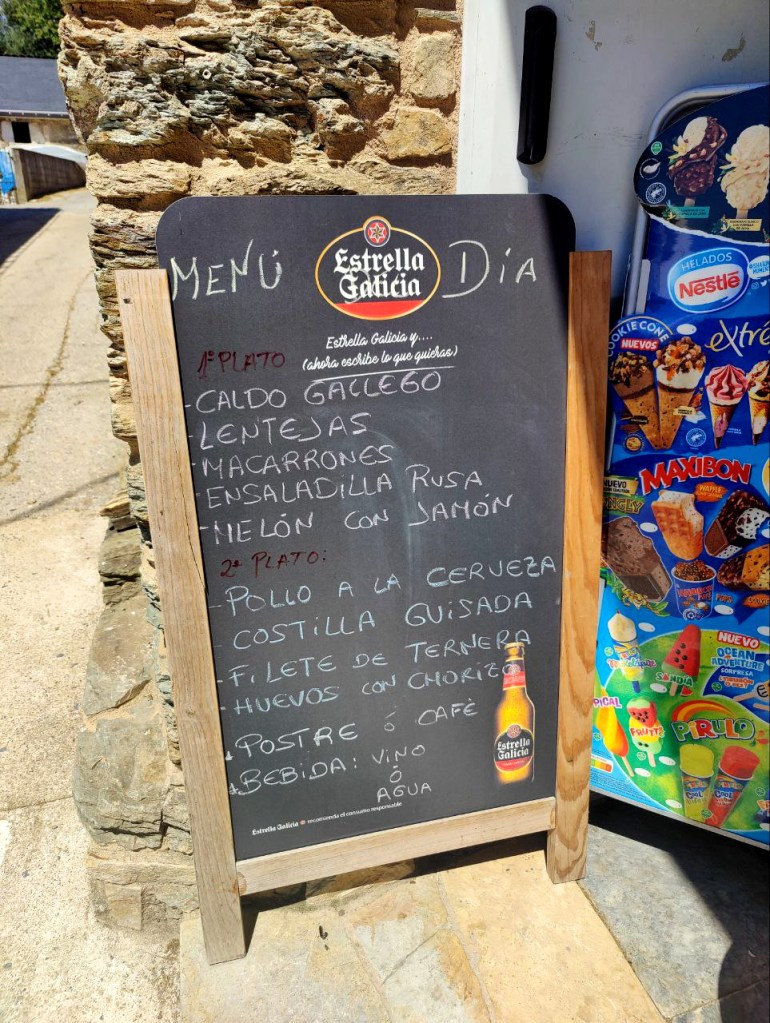 MENÚ DÍA
Estrella
Galicia
Estrella Galicia y....
(ahora escribe lo que quieras)
1º PLATO
- CALDO GALLEGO
- LENTEJAS
- MACARRONES
- ENSALADILLA RUSA
- MELÓN CON JAMÓN
2º PLATO:
- POLLO A LA CERVEZA
- COSTILLA GUISADA
- FILETE DE TERNERA
- HUEVOS CON CHORIZO
POSTRE ó CAFÈ
BEBIDA: VINO
Ó
AGUA
Estrella
Galicia
Estrella Galicia recomienda el consumo responsable
HELADOS
Nestlé
COOKIE CONE
NUEVOS
extrê
MAXIBON
NUEVO
WAFFLE
NUEVO
OCEAN
ADVENTURE
SORPRESA
SANDÍA
FRUTTI
PIRULO